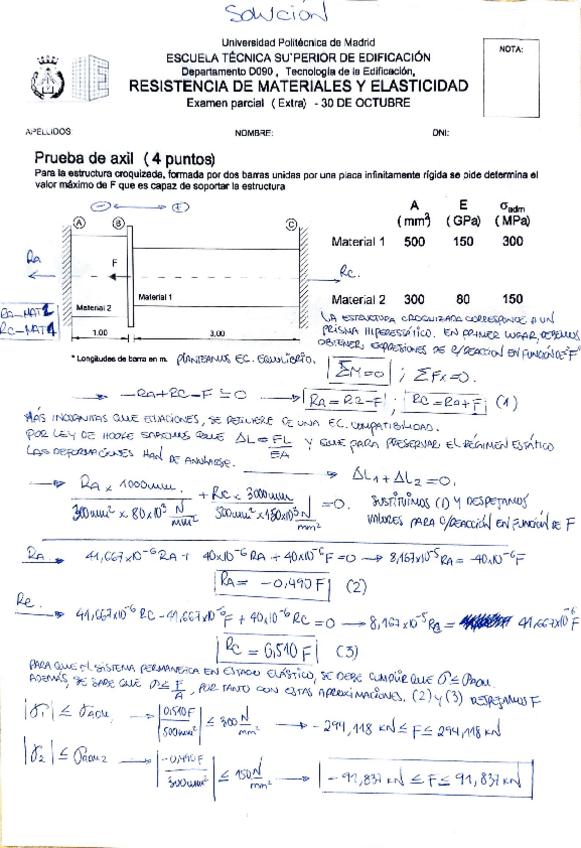 SOLUCIÓN
Universidad Politécnica de Madrid
ESCUELA TÉCNICA SUPERIOR DE EDIFICACIÓN
Departamento D090 , Tecnología de la Edificación,
RESISTENCIA DE MATERIALES Y ELASTICIDAD
Examen parcial ( Extra) - 30 DE OCTUBRE
NOTA:
APELLIDOS: NOMBRE: DNI:
Prueba de axil ( 4 puntos)
Para la estructura croquizada, formada por dos barras unidas por una placa infinitamente rígida se pide determina el
valor máximo de F que es capaz de soportar la estructura
A E σadm
( mm²) ( GPa) ( MPa)
Material 1 500 150 300
Material 2 300 80 150
− +
A B C
RA F RC
Material 2 Material 1
RA→MAT2
RC→MAT1
1.00 3.00
* Longitudes de barra en m.
LA ESTRUCTURA CROQUIZADA CORRESPONDE A UN
PRISMA HIPERESTÁTICO. EN PRIMER LUGAR, DEBEMOS
OBTENER EXPRESIONES DE C/REACCIÓN EN FUNCIÓN DE "F"
PLANTEAMOS EC. EQUILIBRIO. ΣM=0 ; ΣFx=0.
→ -RA+RC-F=0 → RA=RC-F ; RC=RA+F (1)
MÁS INCÓGNITAS QUE ECUACIONES, SE REQUIERE DE UNA EC. COMPATIBILIDAD.
POR LEY DE HOOKE SABEMOS QUE ΔL=FL/EA Y QUE PARA PRESERVAR EL RÉGIMEN ESTÁTICO
LAS DEFORMACIONES HAN DE ANULARSE. → ΔL1+ΔL2=0.
→ RA x 1000mm / 300mm² x 80x10³ N/mm² + RC x 3000mm / 500mm² x 150x10³ N/mm² =0.
SUSTITUIMOS (1) Y DESPEJAMOS
VALORES PARA C/REACCIÓN EN FUNCIÓN DE F
RA → 41,667x10⁻⁶ RA + 40x10⁻⁶ RA + 40x10⁻⁶ F =0 → 8,167x10⁻⁵ RA = -40x10⁻⁶ F
RA = -0,490 F (2)
RC → 41,667x10⁻⁶ RC - 41,667x10⁻⁶ F + 40x10⁻⁶ RC =0 → 8,167x10⁻⁵ RC = 41,667x10⁻⁶ F
RC = 0,510 F (3)
PARA QUE EL SISTEMA PERMANEZCA EN ESTADO ELÁSTICO, SE DEBE CUMPLIR QUE σ≤σADM.
ADEMÁS, SE SABE QUE σ=F/A, POR TANTO CON ESTAS APROXIMACIONES, (2) Y (3) DESPEJAMOS F
|σ1| ≤ σADM1 → |0,510F / 500mm²| ≤ 300 N/mm² → -294,118 kN ≤ F ≤ 294,118 kN
|σ2| ≤ σADM2 → |-0,490F / 300mm²| ≤ 150 N/mm² → -91,837 kN ≤ F ≤ 91,837 kN